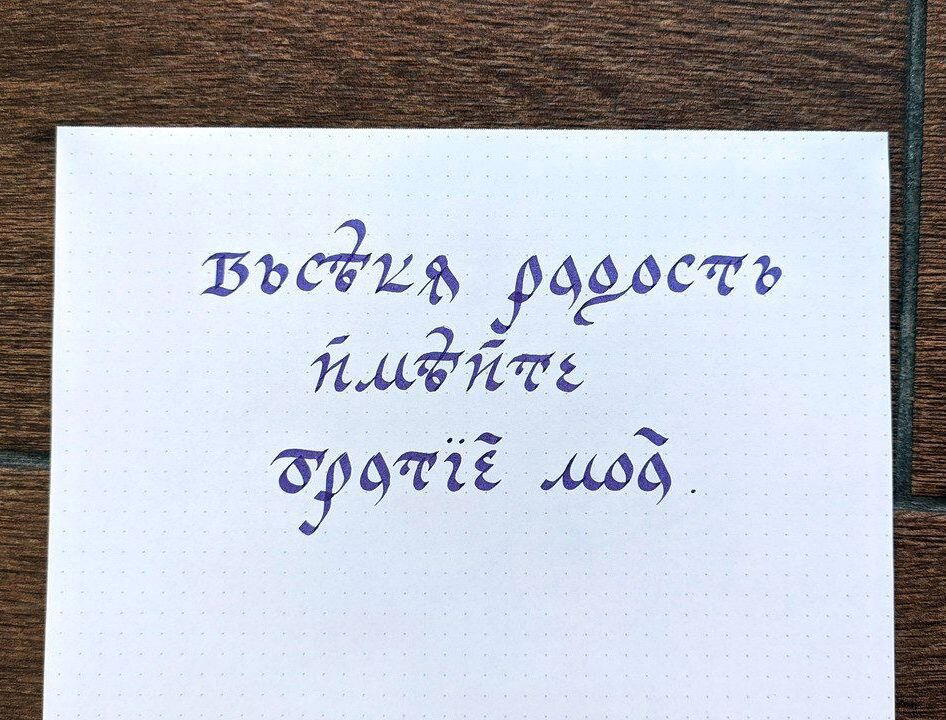 Вьсѣкѫ радость
и҆мѣи҆те
братїе҆ моа҆.